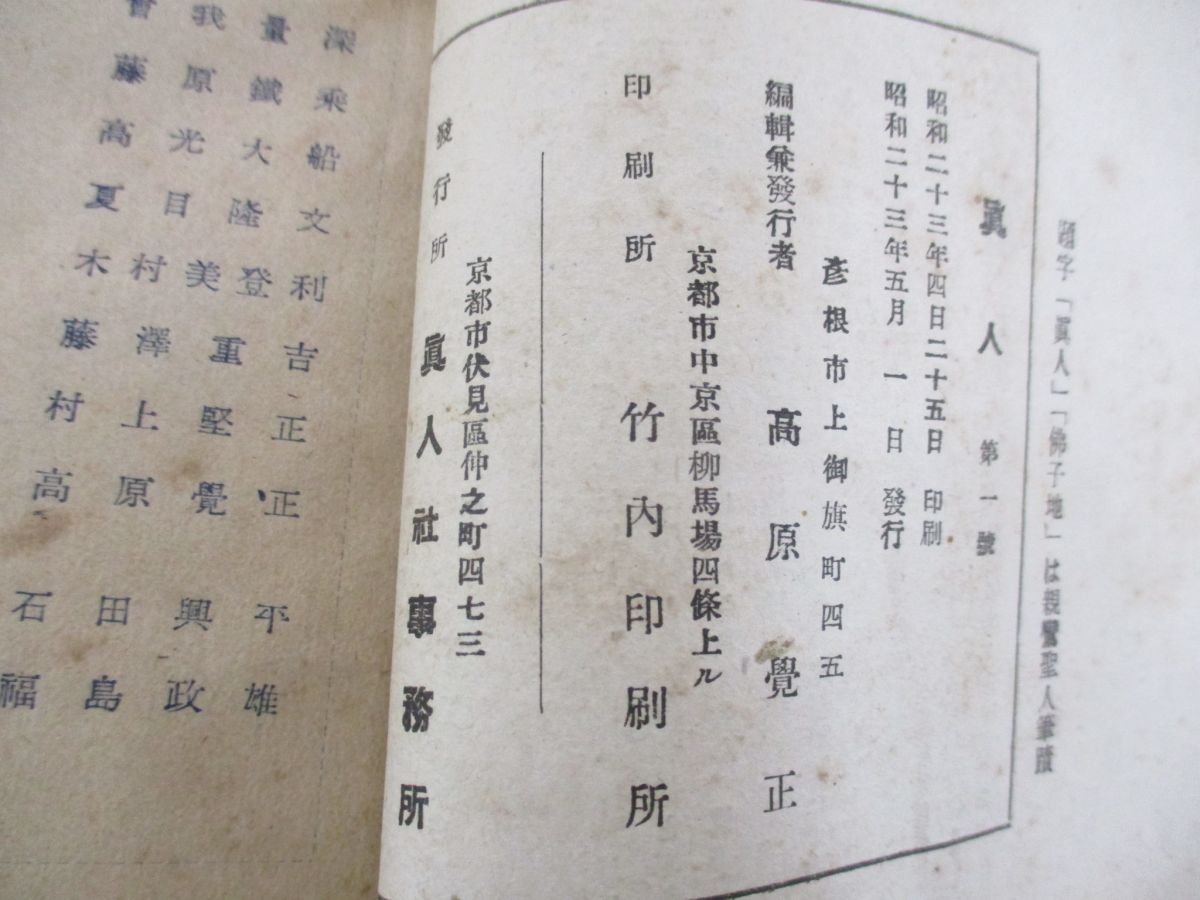 題字「眞人」「佛子地」は親鸞聖人筆蹟
眞人 第一號
昭和二十三年四日二十五日 印刷
昭和二十三年五月一日 發行
彦根市上御旗町四五
編輯兼發行者 高原覺正
京都市中京區柳馬場四條上ル
印刷所 竹內印刷所
京都市伏見區仲之町四七三
發行所 眞人社事務所
深乘船文利吉正正平雄
量鐵大隆登重堅覺興政
我原光目美澤上原田島
曾藤高夏木村藤村高石福